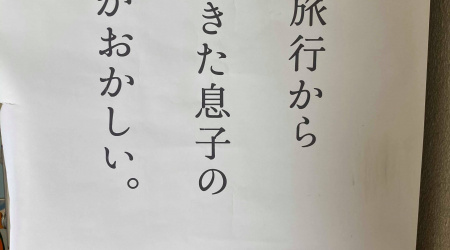 旅行から
きた息子の
がおかしい。